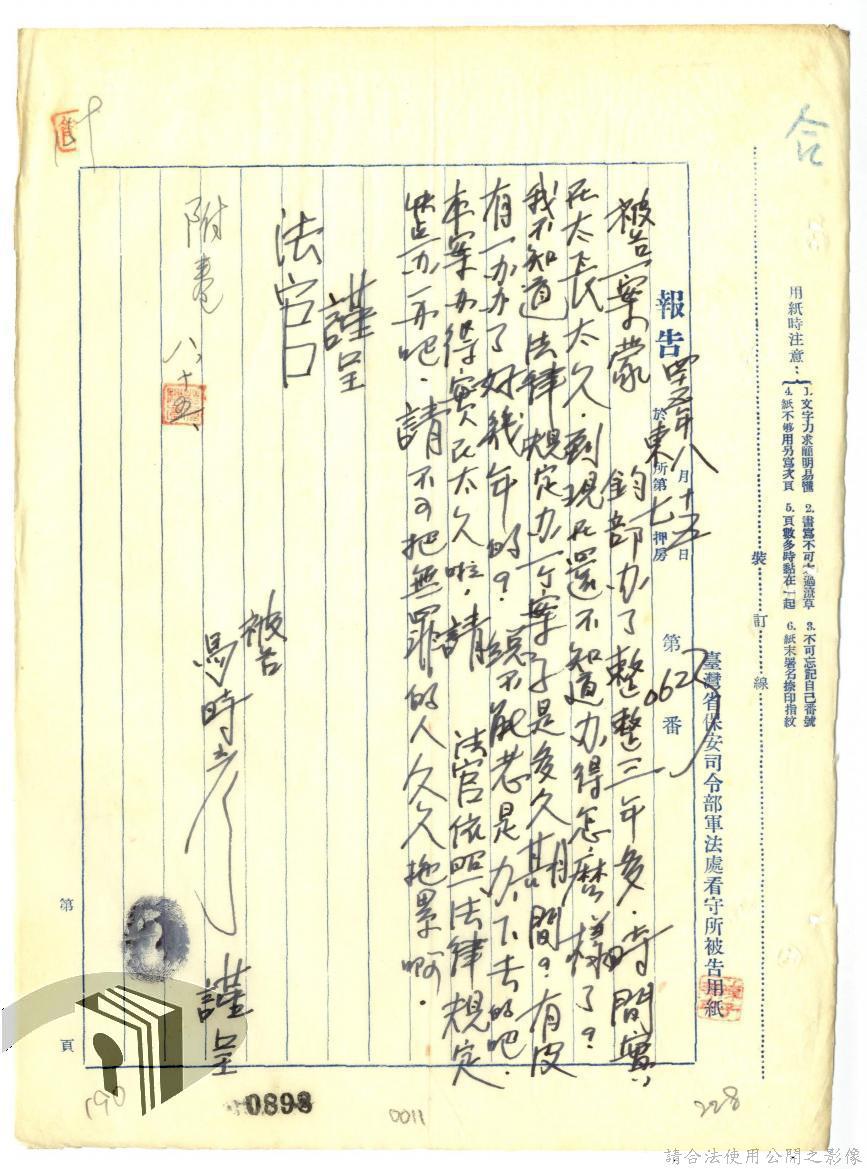 合
用紙時注意：
1. 文字力求顯明易懂
2. 書寫不可太過潦草
3. 不可忘記自己番號
4. 紙不够用另寫次頁
5. 頁數多時黏在一起
6. 紙末署名捺印指紋
裝訂線
臺灣省保安司令部軍法處看守所被告用紙
報告 四十五年八月十五日 於東所第七押房 第0627番
被告一案蒙 鈞部办了整整三年多．時間實
在太長太久．到現在還不知道办得怎麽樣了？
我不知道法律規定办一个案子是多久其間？有沒
有一办办了好幾年的？總不能老是办下去的吧．
本案办得實在太久啦．請 法官依照法律規定
办一办吧．請不可把無罪的人久久拖累啊．
謹呈
法官
被告
馮時彥 謹呈
附卷 八、十五
第 頁
190
0898
0011
228
請合法使用公開之影像